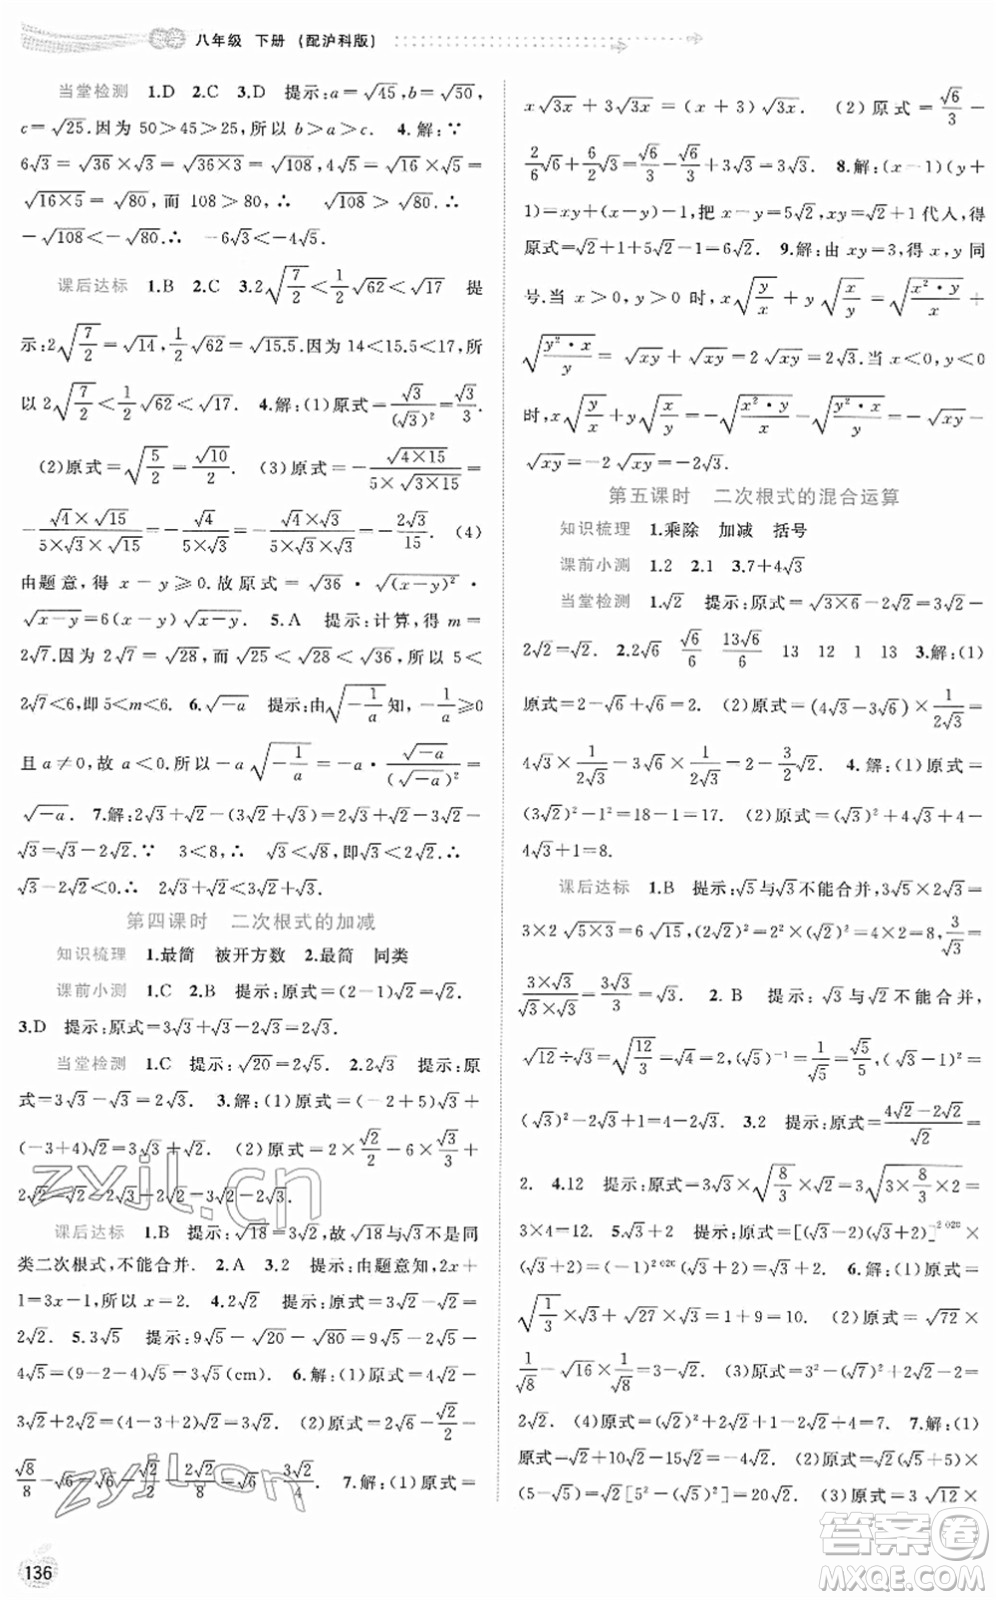 八年级 下册 (配沪科版)
当堂检测 1.D 2.C 3.D 提示:a=√45,b=√50,
c=√25.因为50>45>25,所以b>a>c. 4.解:∵
6√3=√36×√3=√(36×3)=√108,4√5=√16×√5=
√(16×5)=√80,而108>80,∴ √108>√80.∴
-√108<-√80.∴ -6√3<-4√5.
课后达标 1.B 2.C 3.2√(7/2)<1/2√62<√17 提
示:2√(7/2)=√14,1/2√62=√15.5.因为14<15.5<17,所
以2√(7/2)<1/2√62<√17. 4.解:(1)原式=√3/(√3)²=√3/3.
(2)原式=√(5/2)=√10/2. (3)原式=-√(4×15)/(5×√3×√15)=
-(√4×√15)/(5×√3×√15)=-√4/(5×√3)=-(√4×√3)/(5×√3×√3)=-2√3/15. (4)
由题意,得x-y≥0.故原式=√36·√(x-y)²·
√(x-y)=6(x-y)√(x-y). 5.A 提示:计算,得m=
2√7.因为2√7=√28,而√25<√28<√36,所以5<
2√7<6,即5<m<6. 6.√-a 提示:由√(-1/a)知,-1/a≥0
且a≠0,故a<0.所以-a√(-1/a)=-a·√-a/(√-a)²=
√-a. 7.解:2√3+√2-(2√2+√3)=2√3+√2-2√2-
√3=√3-2√2.∵ 3<8,∴√3<√8,即√3<2√2.∴
√3-2√2<0.∴ 2√3+√2<2√2+√3.
第四课时 二次根式的加减
知识梳理 1.最简 被开方数 2.最简 同类
课前小测 1.C 2.B 提示:原式=(2-1)√2=√2.
3.D 提示:原式=3√3+√3-2√3=2√3.
当堂检测 1.C 提示:√20=2√5. 2.2√3 提示:原
式=3√3-√3=2√3. 3.解:(1)原式=(-2+5)√3+
(-3+4)√2=3√3+√2. (2)原式=2×√2/2-6×√3/3-
2√2=√2-2√3-2√2=-2√3-√2.
课后达标 1.B 提示:√18=3√2,故√18与√3不是同
类二次根式,不能合并. 2.A 3.2 提示:由题意,得2x+
1=3x-1,所以x=2. 4.2√2 提示:原式=4√2-2√2=
2√2. 5.3√5 提示:9√5-√20-√80=9√5-2√5-
4√5=(9-2-4)√5=3√5(cm). 6.解:(1)原式=4√2-
3√2+2√2=(4-3+2)√2=3√2. (2)原式=2√6-√2/2-
√8/8-√6=2√6-√6-√2/2-2√2/8=√6-3√2/4. 7.解:(1)原式=
x√3x+3√3x=(x+3)√3x. (2)原式=√6/3-
2/6√6+6/3√3=√6/3-√6/3+2√3=2√3. 8.解:(x-1)(y+
1)=xy+(x-y)-1,把x-y=5√2,xy=√2+1代入,得
原式=√2+1+5√2-1=6√2. 9.解:由xy=3,得x,y同
号.当x>0,y>0时,x√(y/x)+y√(x/y)=√(x²·y/x)+
√(y²·x/y)=√xy+√xy=2√xy=2√3.当x<0,y<0
时,x√(y/x)+y√(x/y)=-√(x²·y/x)-√(y²·x/y)=-√xy-
√xy=-2√xy=-2√3.
第五课时 二次根式的混合运算
知识梳理 1.乘除 加减 括号
课前小测 1.2 2.1 3.7+4√3
当堂检测 1.√2 提示:原式=√(3×6)-2√2=3√2-
2√2=√2. 2.2√6 √6/6 13√6/6 13 12 1 13 3.解:(1)
原式=2-√6+√6=2. (2)原式=(4√3-3√6)×1/(2√3)=
4√3×1/(2√3)-3√6×1/(2√3)=2-3/2√2. 4.解:(1)原式=
(3√2)²-1²=18-1=17. (2)原式=(√3)²+4√3+4-
4√3+1=8.
课后达标 1.B 提示:√5与√3不能合并,3√5×2√3=
3×2√(5×3)=6√15,(2√2)²=2²×(√2)²=4×2=8,3/√3=
(3×√3)/(√3×√3)=3√3/3=√3. 2.B 提示:√3与√2不能合并,
√12÷√3=√(12/3)=√4=2,(√5)⁻¹=1/√5=√5/5,(√3-1)²=
(√3)²-2√3+1=4-2√3. 3.2 提示:原式=(4√2-2√2)/√2=
2. 4.12 提示:原式=3√3×√(8/3)×√2=3√(3×8/3×2)=
3×4=12. 5.√3+2 提示:原式=[(√3-2)(√3+2)]²⁰²⁰×
(√3+2)=(-1)²⁰²⁰×(√3+2)=√3+2. 6.解:(1)原式=
√(1/3)×√3+√27×√3=1+9=10. (2)原式=√72×
1/√8-√16×√(1/8)=3-√2. (3)原式=3²-√7)²+2√2-2=
2√2. (4)原式=(√2)²-2√2+1+2√2+4=7. 7.解:(1)
原式=10√2-15√2=-5√2. (2)原式=2√5(5+√5)×
(5-√5)=2√5[5²-(√5)²]=20√5. (3)原式=3√12×
136
zyjl.cn
zyjl.cn
答案圈
MXQE.COM